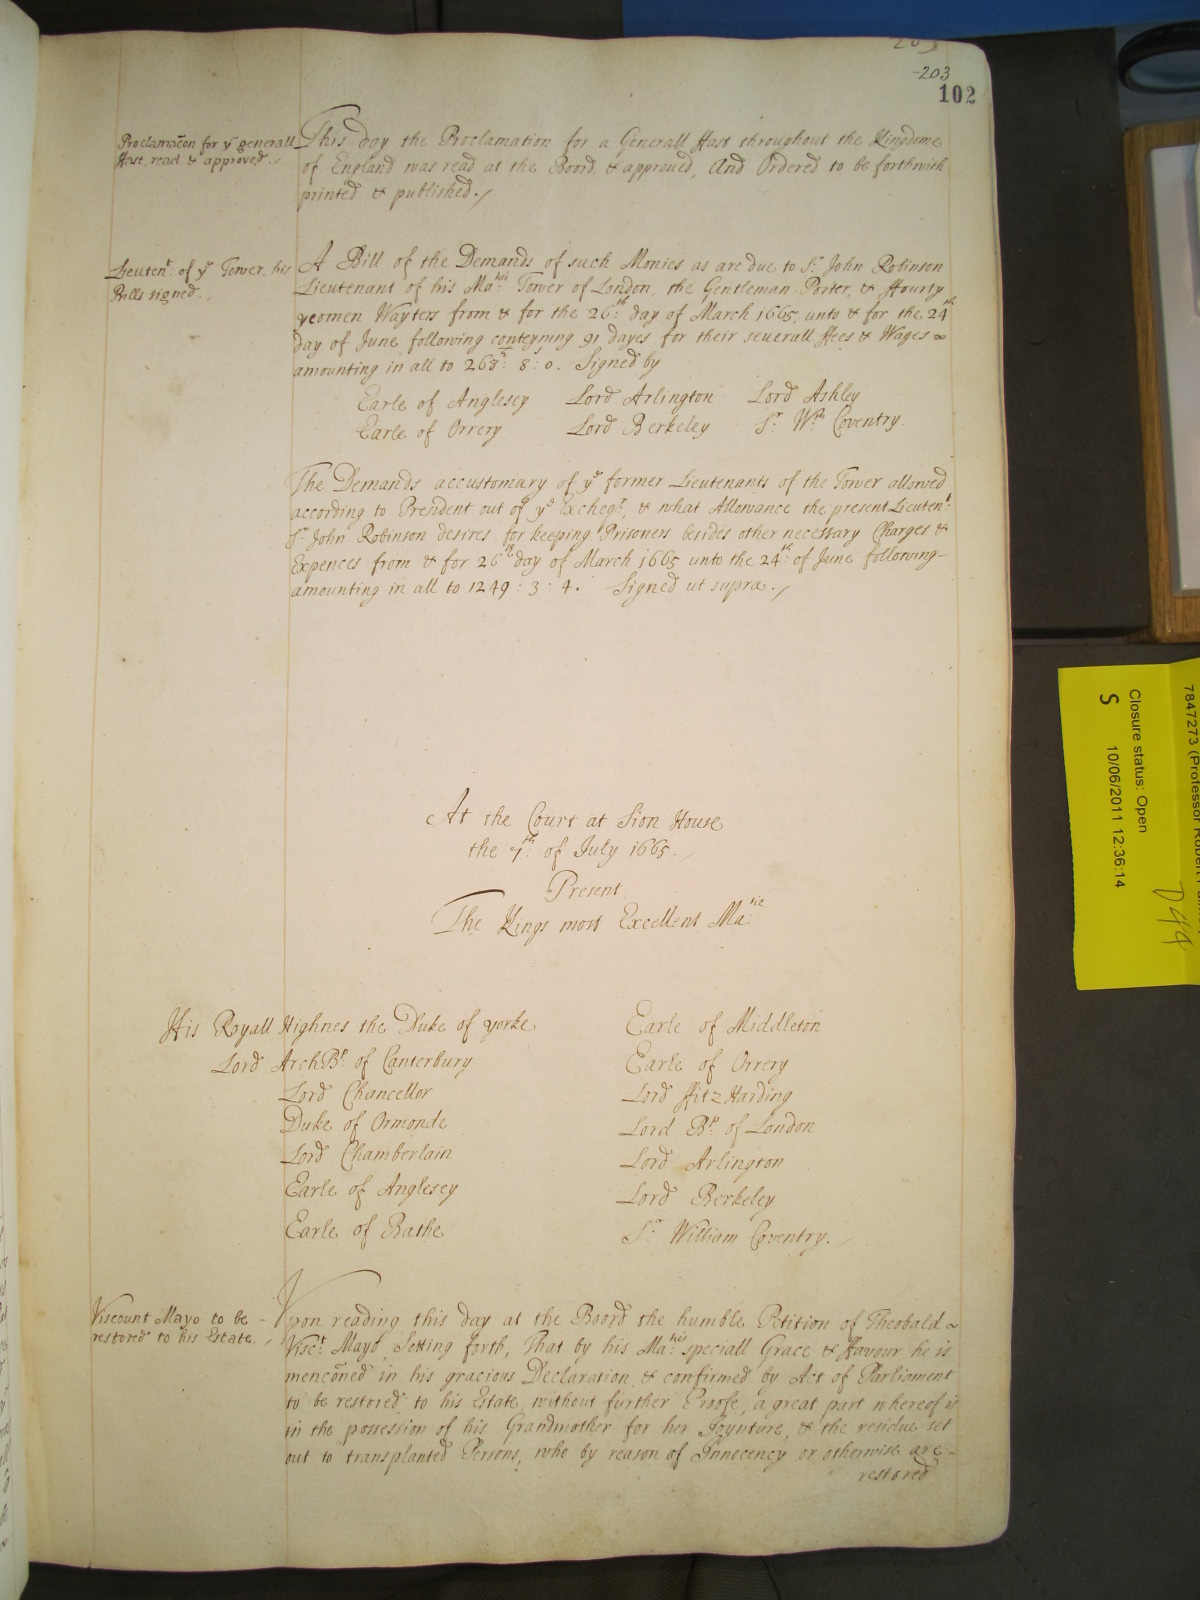 203
102
Proclamacõn for yͤ generall
Fast read & approved.
This day the Proclamation for a Generall Fast throughout the Kingdome
of England was read at the Boord, & approued, And Ordered to be forthwith
printed & published./
Lieutenᵗ: of yͤ Tower, his
Bills signed.
A Bill of the Demands of such Monies as are due to Sʳ John Robinson
Lieutenant of his Maᵗⁱᵉˢ: Tower of London, the Gentleman-Porter, & ffourty
yeomen Wayters from & for the 26ᵗʰ: day of March 1665, unto & for the 24ᵗʰ
day of June following conteyning 91 dayes for their seuerall ffees & Wages
amounting in all to : 8ˢ: 0. Signed by
Earle of Anglesey Lord Arlington Lord Ashley
Earle of Orrery Lord Berkeley Sʳ Wᵐ Coventry.
The Demands accustomary of yͤ former Lieutenants of the Tower allowed
according to President out of yͤ Exchegʳ, & what Allowance the present Lieutenᵗ:
Sʳ John Robinson desires for keeping Prisoners besides other necessary Charges &
Expences from & for 26ᵗʰ day of March 1665 unto the 24ᵗʰ: of June following-
amounting in all to 1249 : 3 : 4. Signed ut supra./
At the Court at Sion House
the 7ᵗʰ: of July 1665.
Present
The Kings most Excellent Maᵗⁱᵉ:
His Royall Highnes the Duke of yorke
Lord ArchBᵖ: of Canterbury
Lord Chancellor
Duke of Ormonde
Lord Chamberlain
Earle of Anglesey
Earle of Bathe
Earle of Middleton
Earle of Orrery
Lord ffitzHarding
Lord Bᵖ: of London
Lord Arlington
Lord Berkeley
Sʳ: William Coventry.
Viscount Mayo to be
restored to his Estate.
Vpon reading this day at the Boord the humble Petition of Theobald
Viscᵗ Mayo, Setting forth, That by his Maᵗⁱᵉˢ: speciall Grace & ffavour he is
mencõned in his gracious Declaration, & confirmed by Act of Parliament
to be restored to his Estate, without further Proofe, a great part whereof is
in the possession of his Grandmother for her Joynture, & the residue set
out to transplanted Persons, who by reason of Innocency or otherwise are-
restored
7847273 (Professor Robert
Closure status: Open
10/06/2011 12:36:14
S